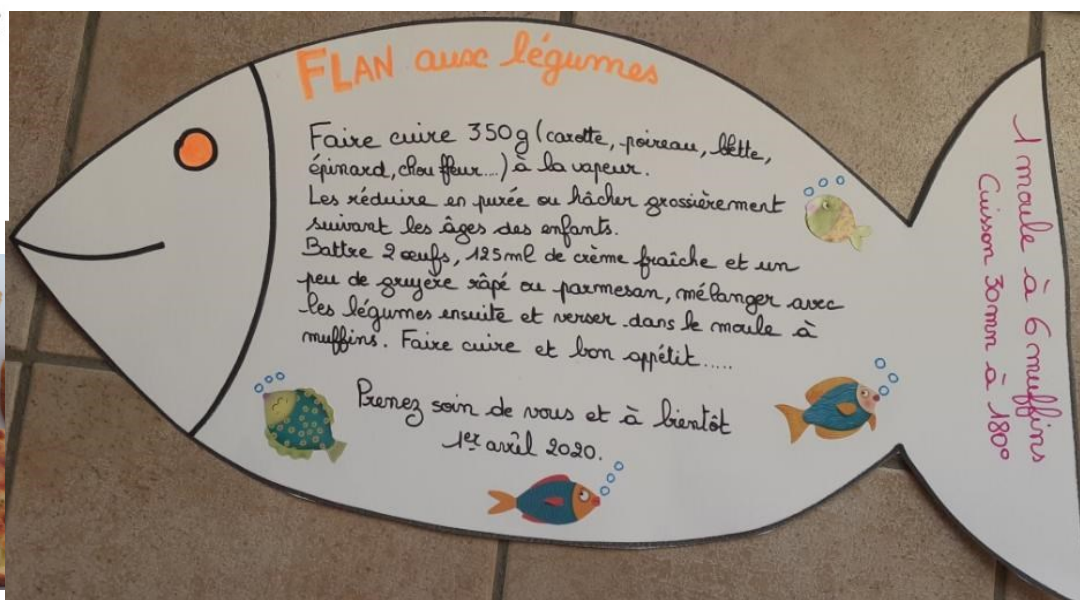 FLAN aux légumes
Faire cuire 350g (carotte, poireau, blette,
épinard, chou fleur...) à la vapeur.
Les réduire en purée ou hâcher grossièrement
suivant les âges des enfants.
Battre 2 œufs, 125ml de crème fraîche et un
peu de gruyère râpé ou parmesan, mélanger avec
les légumes ensuite et verser dans le moule à
muffins. Faire cuire et bon appétit.....
Prenez soin de vous et à bientôt
1er avril 2020.
1 moule à 6 muffins
Cuisson 30mn à 180°